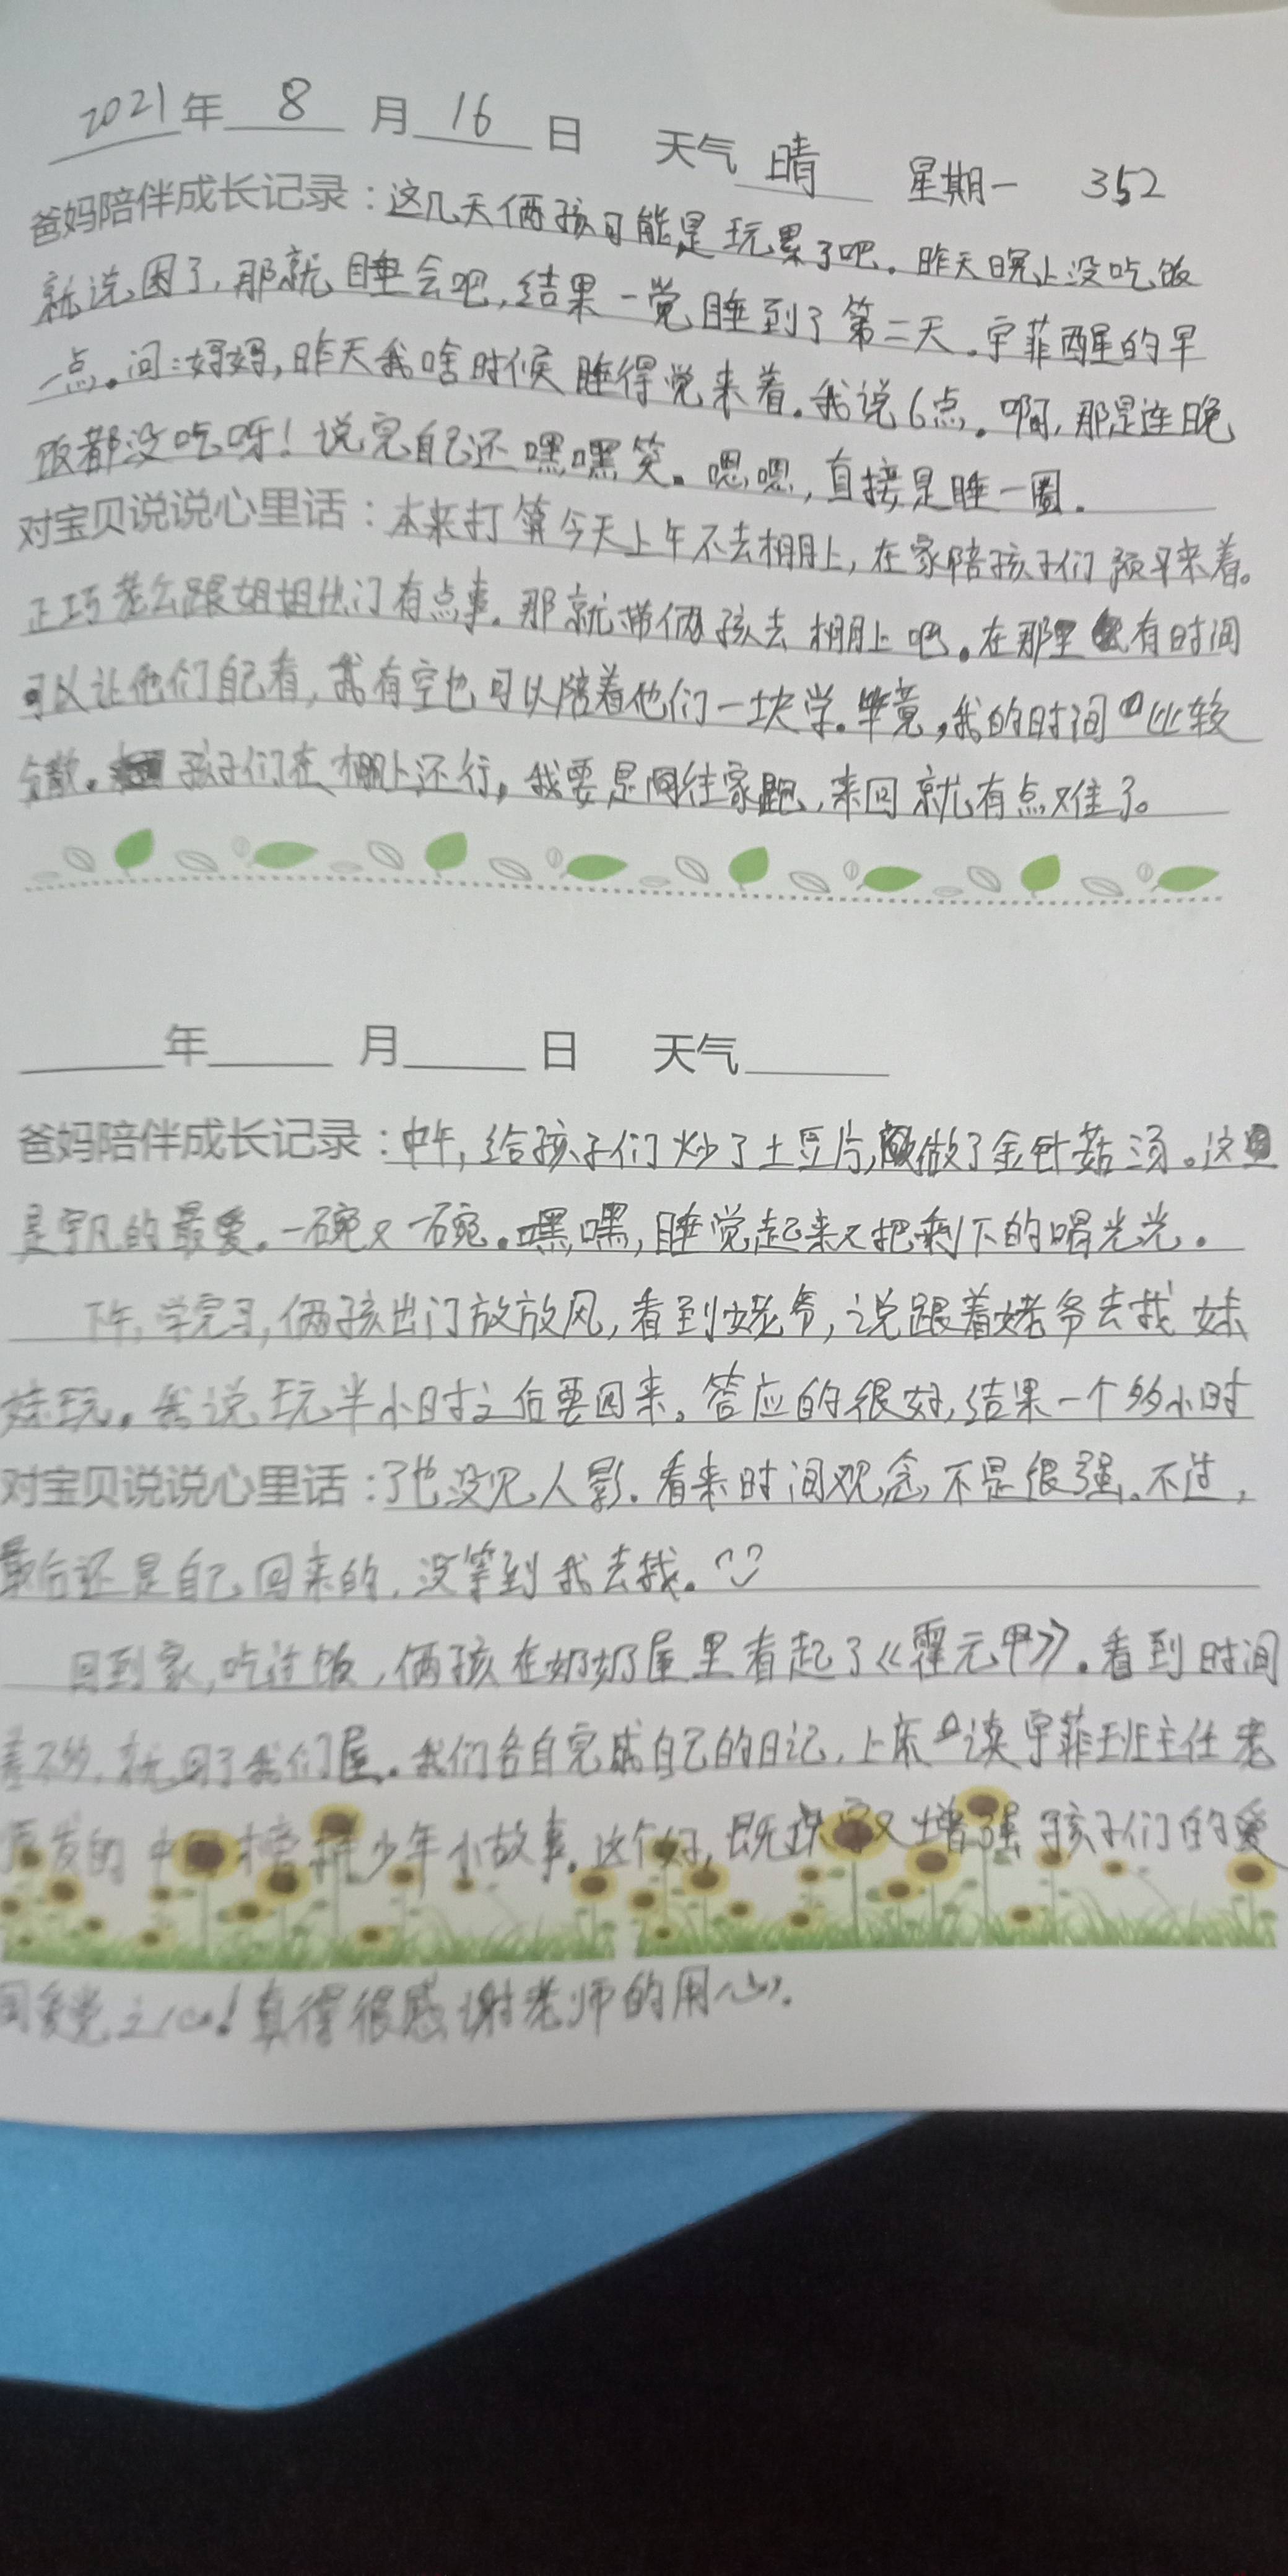 2021年 8 月 16 日 天气 晴 星期一 352
爸妈陪伴成长记录：这几天俩孩可能是玩累了吧。昨天晚上没吃饭
就说困了，那就睡会吧，结果一觉睡到了第二天。宇菲醒的早
一点。问：妈妈，昨天我啥时候睡得觉来着。我说6点。啊，那是连晚
饭都没吃呀！说完自己还嘿嘿笑。嗯嗯，直接是睡一圈。
对宝贝说说心里话：本来打算今天上午不去棚上，在家陪孩子们预习来着。
正巧老公跟姐姐他们有点事。那就带俩孩去棚上吧。在那里有时间
可以让他们自己看，我有空也可以陪着他们一块学。毕竟，我的时间比较
分散。孩子们在棚上还行，我要是网往家跑，来回就有点难了。
年 月 日 天气
爸妈陪伴成长记录：中午，给孩子们炒了土豆片，做了金针菇汤。这
是宇凡的最爱。一碗又一碗。嘿嘿，睡觉起来又把剩下的喝光光。
下午，学完习，俩孩出门放放风，看到姥爷，说跟着姥爷去找妹
妹玩。我说玩半小时之后要回来。答应的很好，结果一个多小时
对宝贝说说心里话：了也没见人影。看来时间观念不是很强。不过，
最后还是自己回来的，没等到我去找。
回到家，吃过饭，俩孩在奶奶屋里看起了《霍元甲》。看到时间
差不多，就回了我们屋。我们各自完成自己的日记，上床读宇菲班主任老
发的中国少年小故事。这个好，既又增强孩子们的爱
国爱党之心！真得很感谢老师的用心。